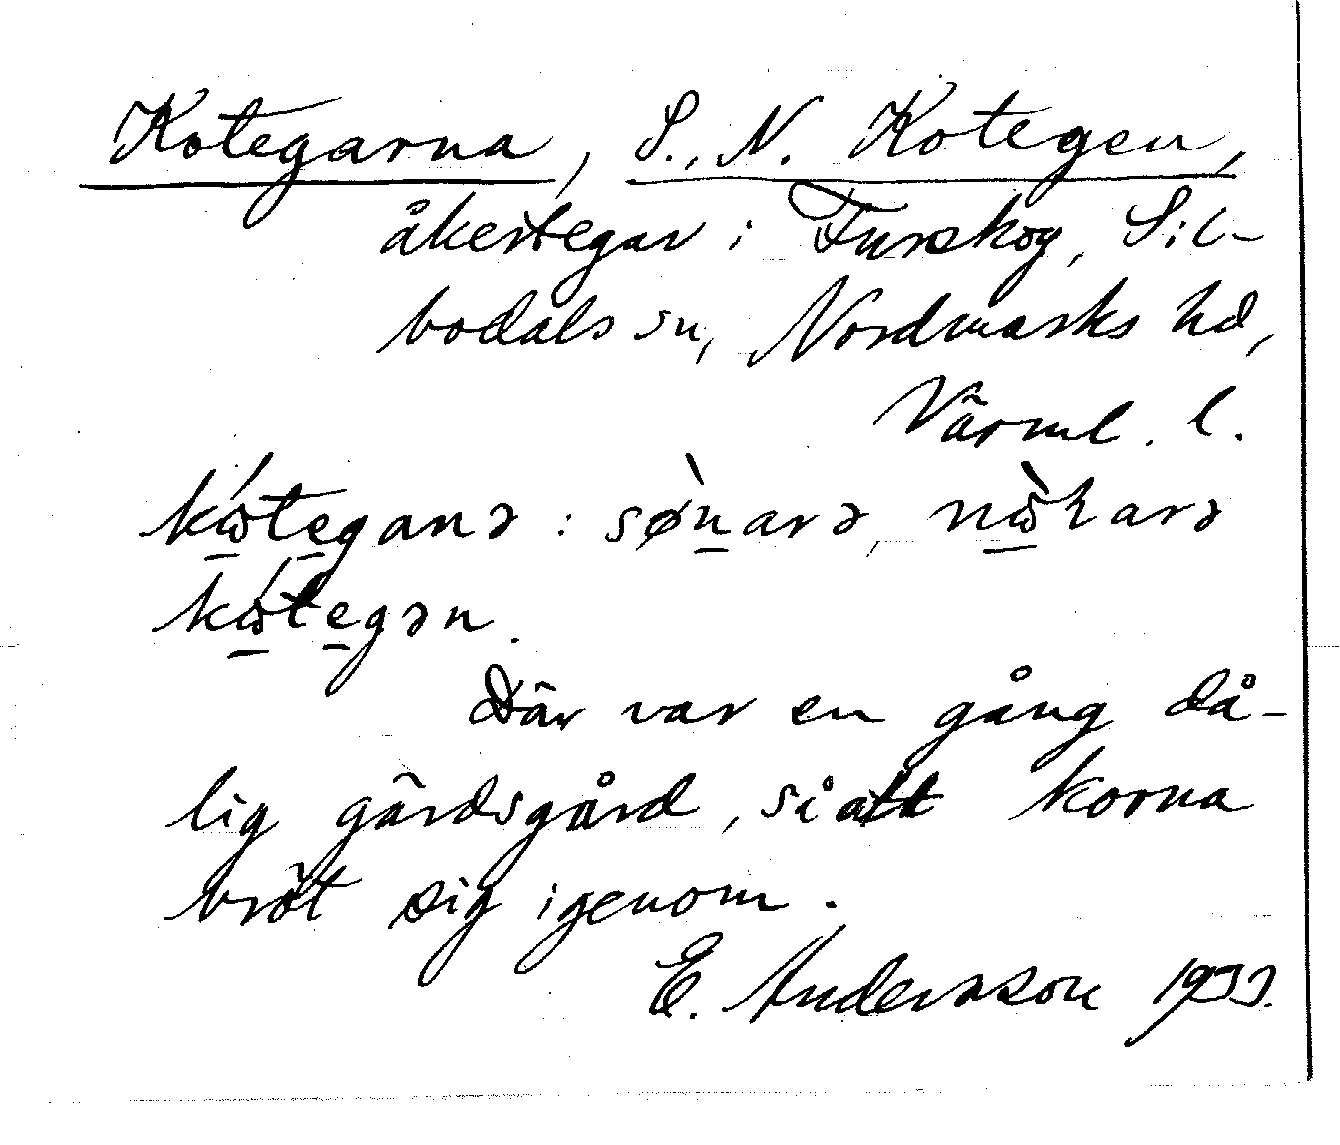 Kotegarna, S., N. Kotegen,
åkertegar i Furskog, Sil-
bodals sn, Nordmarks hd,
Värml. l.
kώteganə : sø̀narə, nὼɽarə
kώtegən.
Där var en gång då-
lig gärdsgård, så att korna
bröt sig igenom.
E. Andersson 1933.